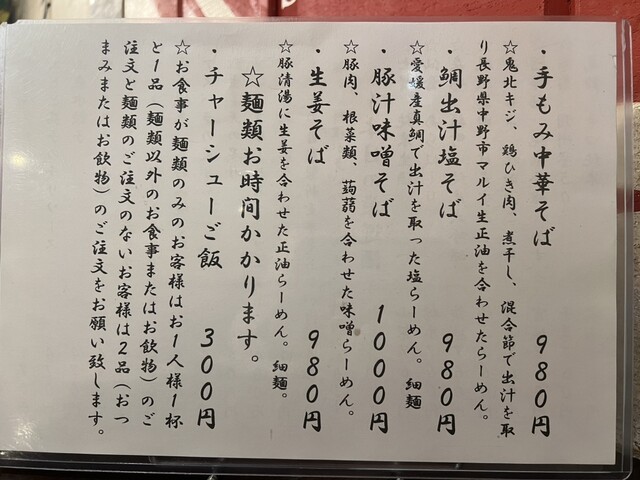 ・手もみ中華そば　９８０円
☆鬼北キジ、鶏ひき肉、煮干し、混合節で出汁を取
り長野県中野市マルイ生正油を合わせたらーめん。
・鯛出汁塩そば　９８０円
☆愛媛産真鯛で出汁を取った塩らーめん。細麺
・豚汁味噌そば　１０００円
☆豚肉、根菜類、蒟蒻を合わせた味噌らーめん。
・生姜そば　９８０円
☆豚清湯に生姜を合わせた正油らーめん。細麺。
☆麺類お時間かかります。
・チャーシューご飯　３００円
☆お食事が麺類のみのお客様はお１人様１杯
と１品（麺類以外のお食事またはお飲物）のご
注文と麺類のご注文のないお客様は２品（おつ
まみまたはお飲物）のご注文をお願い致します。